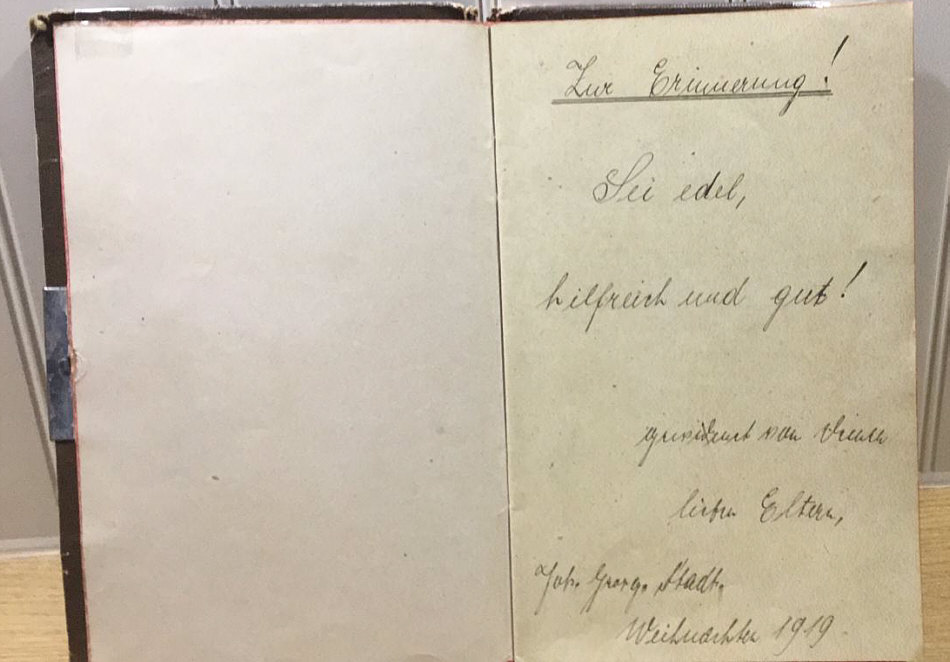 Zur Erinnerung!
Sei edel,
hilfreich und gut!
gewidmet von Deinen
lieben Eltern,
Joh. Georg. Stadt.
Weihnachten 1919